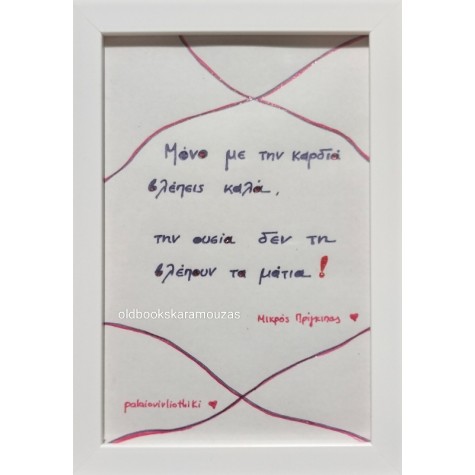 Μόνο με την καρδιά
βλέπεις καλά.
την ουσία δεν τη
βλέπουν τα μάτια!
oldbookskaramouzas
Μικρός Πρίγκιπας
palaiovivliothiki